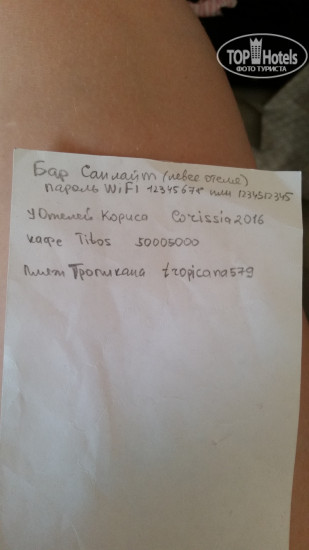 TOP Hotels
ФОТО ТУРИСТА
Бар Санлайт (левее отеля)
пароль WiFi 12345678 или 1234512345
У Отелей Кориса Corissia2016
кафе Titos 50005000
пляж Тропикана tropicana579